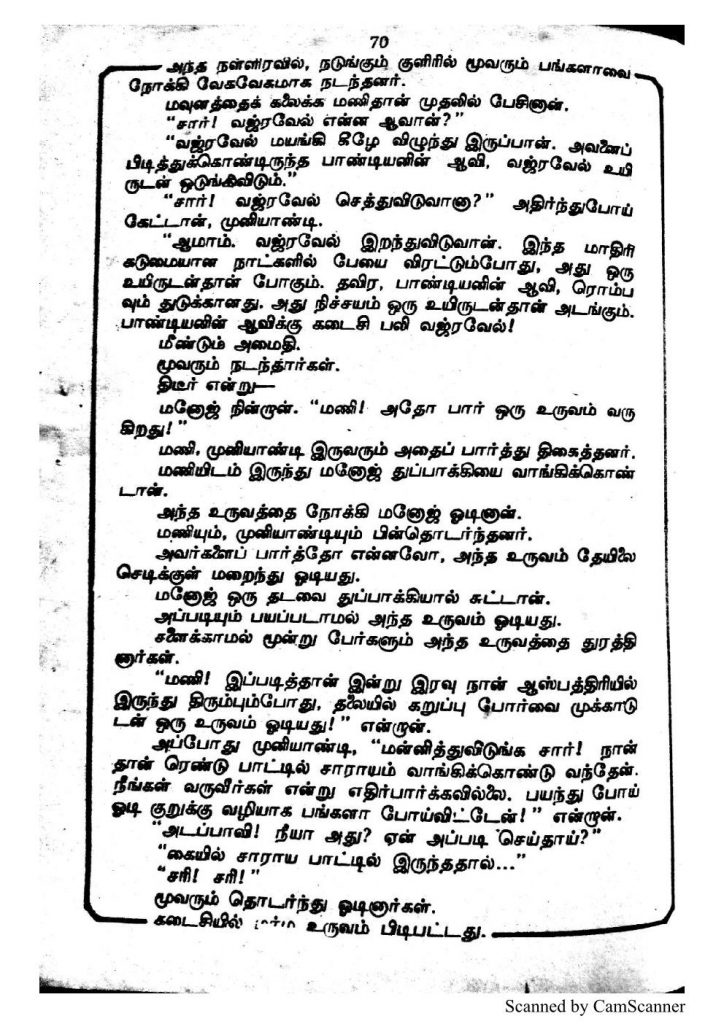 70
அந்த நள்ளிரவில், நடுங்கும் குளிரில் மூவரும் பங்களாவை
நோக்கி வேகவேகமாக நடந்தனர்.
மவுனத்தைக் கலைக்க மணிதான் முதலில் பேசினான்.
“சார்! வஜ்ரவேல் என்ன ஆவான்?”
“வஜ்ரவேல் மயங்கி கீழே விழுந்து இருப்பான். அவனைப்
பிடித்துக்கொண்டிருந்த பாண்டியனின் ஆவி, வஜ்ரவேல் உயி
ருடன் ஒடுங்கிவிடும்.”
“சார்! வஜ்ரவேல் செத்துவிடுவானா?” அதிர்ந்துபோய்
கேட்டான், முனியாண்டி.
“ஆமாம். வஜ்ரவேல் இறந்துவிடுவான். இந்த மாதிரி
கடுமையான நாட்களில் பேயை விரட்டும்போது, அது ஒரு
உயிருடன்தான் போகும். தவிர, பாண்டியனின் ஆவி, ரொம்ப
வும் துடுக்கானது. அது நிச்சயம் ஒரு உயிருடன்தான் அடங்கும்.
பாண்டியனின் ஆவிக்கு கடைசி பலி வஜ்ரவேல்!
மீண்டும் அமைதி.
மூவரும் நடந்தார்கள்.
திடீர் என்று—
மனோஜ் நின்றான். “மணி! அதோ பார் ஒரு உருவம் வரு
கிறது!”
மணி, முனியாண்டி இருவரும் அதைப் பார்த்து திகைத்தனர்.
மணியிடம் இருந்து மனோஜ் துப்பாக்கியை வாங்கிக்கொண்
டான்.
அந்த உருவத்தை நோக்கி மனோஜ் ஓடினான்.
மணியும், முனியாண்டியும் பின்தொடர்ந்தனர்.
அவர்களைப் பார்த்தோ என்னவோ, அந்த உருவம் தேயிலை
செடிக்குள் மறைந்து ஓடியது.
மனோஜ் ஒரு தடவை துப்பாக்கியால் சுட்டான்.
அப்படியும் பயப்படாமல் அந்த உருவம் ஓடியது.
சளைக்காமல் மூன்று பேர்களும் அந்த உருவத்தை துரத்தி
னார்கள்.
“மணி! இப்படித்தான் இன்று இரவு நான் ஆஸ்பத்திரியில்
இருந்து திரும்பும்போது, தலையில் கறுப்பு போர்வை முக்காடு
டன் ஒரு உருவம் ஓடியது!” என்றான்.
அப்போது முனியாண்டி, “மன்னித்துவிடுங்க சார்! நான்
தான் ரெண்டு பாட்டில் சாராயம் வாங்கிக்கொண்டு வந்தேன்.
நீங்கள் வருவீர்கள் என்று எதிர்பார்க்கவில்லை. பயந்து போய்
ஓடி குறுக்கு வழியாக பங்களா போய்விட்டேன்!” என்றான்.
“அடப்பாவி! நீயா அது? ஏன் அப்படி செய்தாய்?”
“கையில் சாராய பாட்டில் இருந்ததால்...”
“சரி! சரி!”
மூவரும் தொடர்ந்து ஓடினார்கள்.
கடைசியில் உருவம் பிடிபட்டது.
Scanned by CamScanner